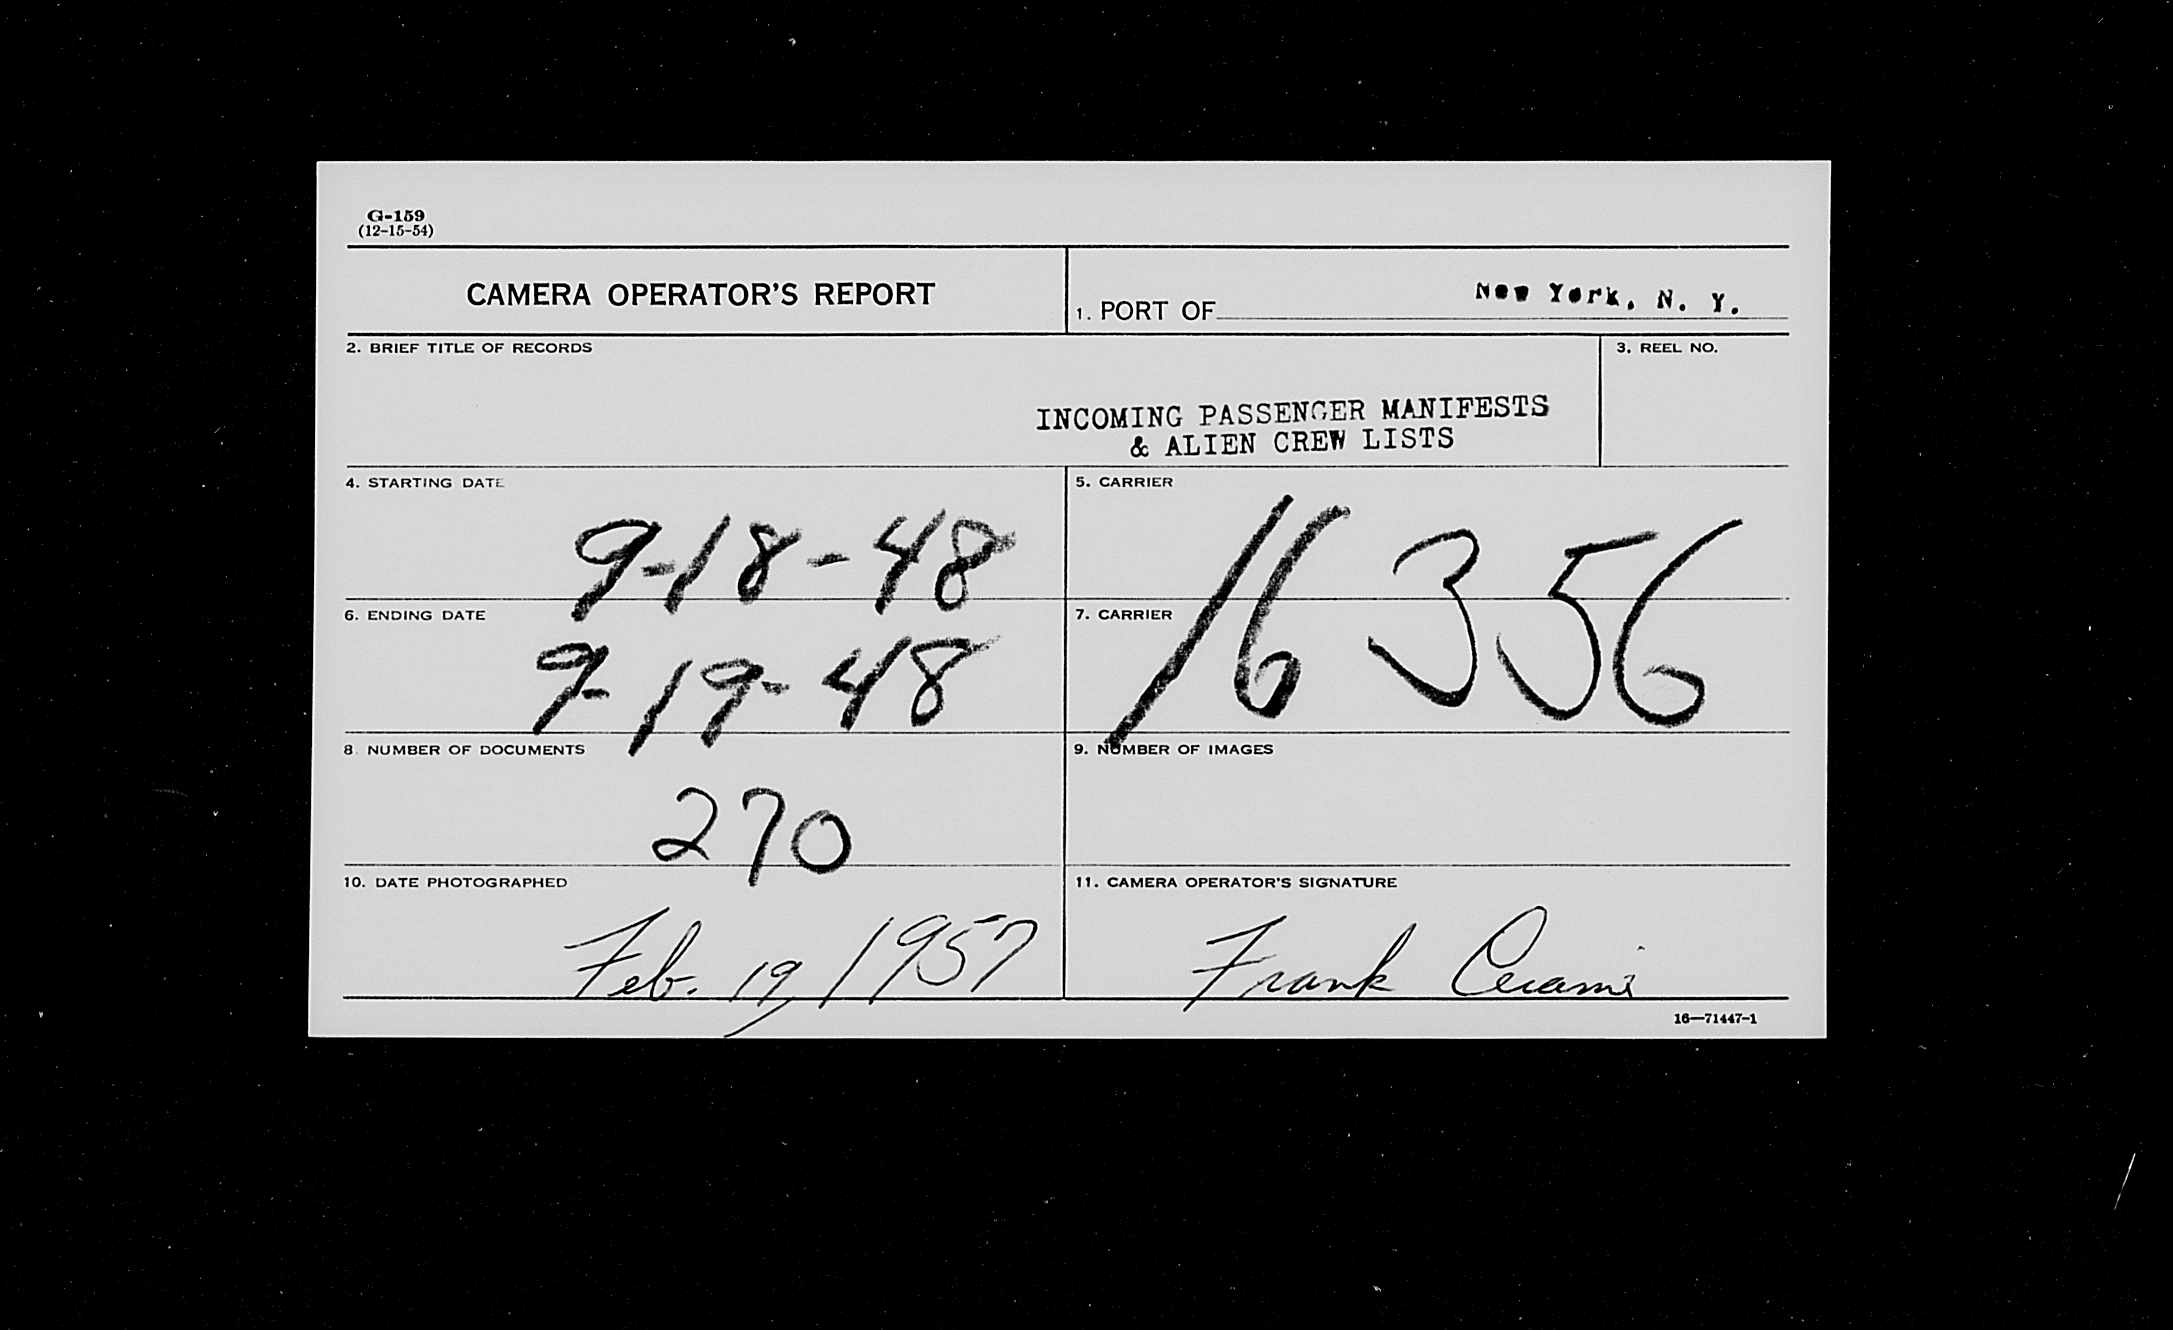 G-159
(12-15-54)
CAMERA OPERATOR'S REPORT
1. PORT OF New York, N. Y.
2. BRIEF TITLE OF RECORDS
3. REEL NO.
INCOMING PASSENGER MANIFESTS
& ALIEN CREW LISTS
4. STARTING DATE
9-18-48
5. CARRIER
16356
6. ENDING DATE
9-19-48
7. CARRIER
8. NUMBER OF DOCUMENTS
270
9. NUMBER OF IMAGES
10. DATE PHOTOGRAPHED
Feb. 19, 1957
11. CAMERA OPERATOR'S SIGNATURE
Frank
16—71447-1